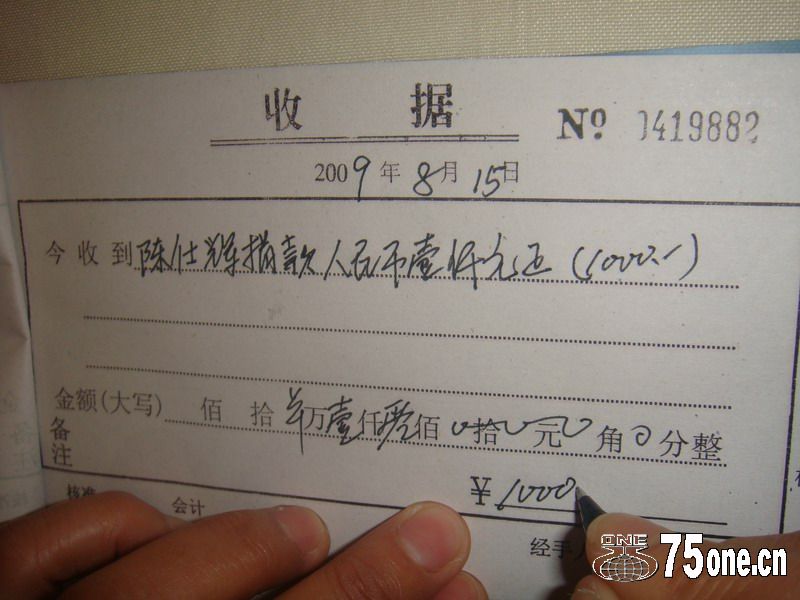 收 据
No 0419882
2009年8月15日
今收到陈仕辉捐款人民币壹仟元正(1000.-)
金额(大写) 佰 拾 万壹仟零佰0拾0元0角0分整
备注
¥1000
核准 会计
经手人
ONE 75one.cn